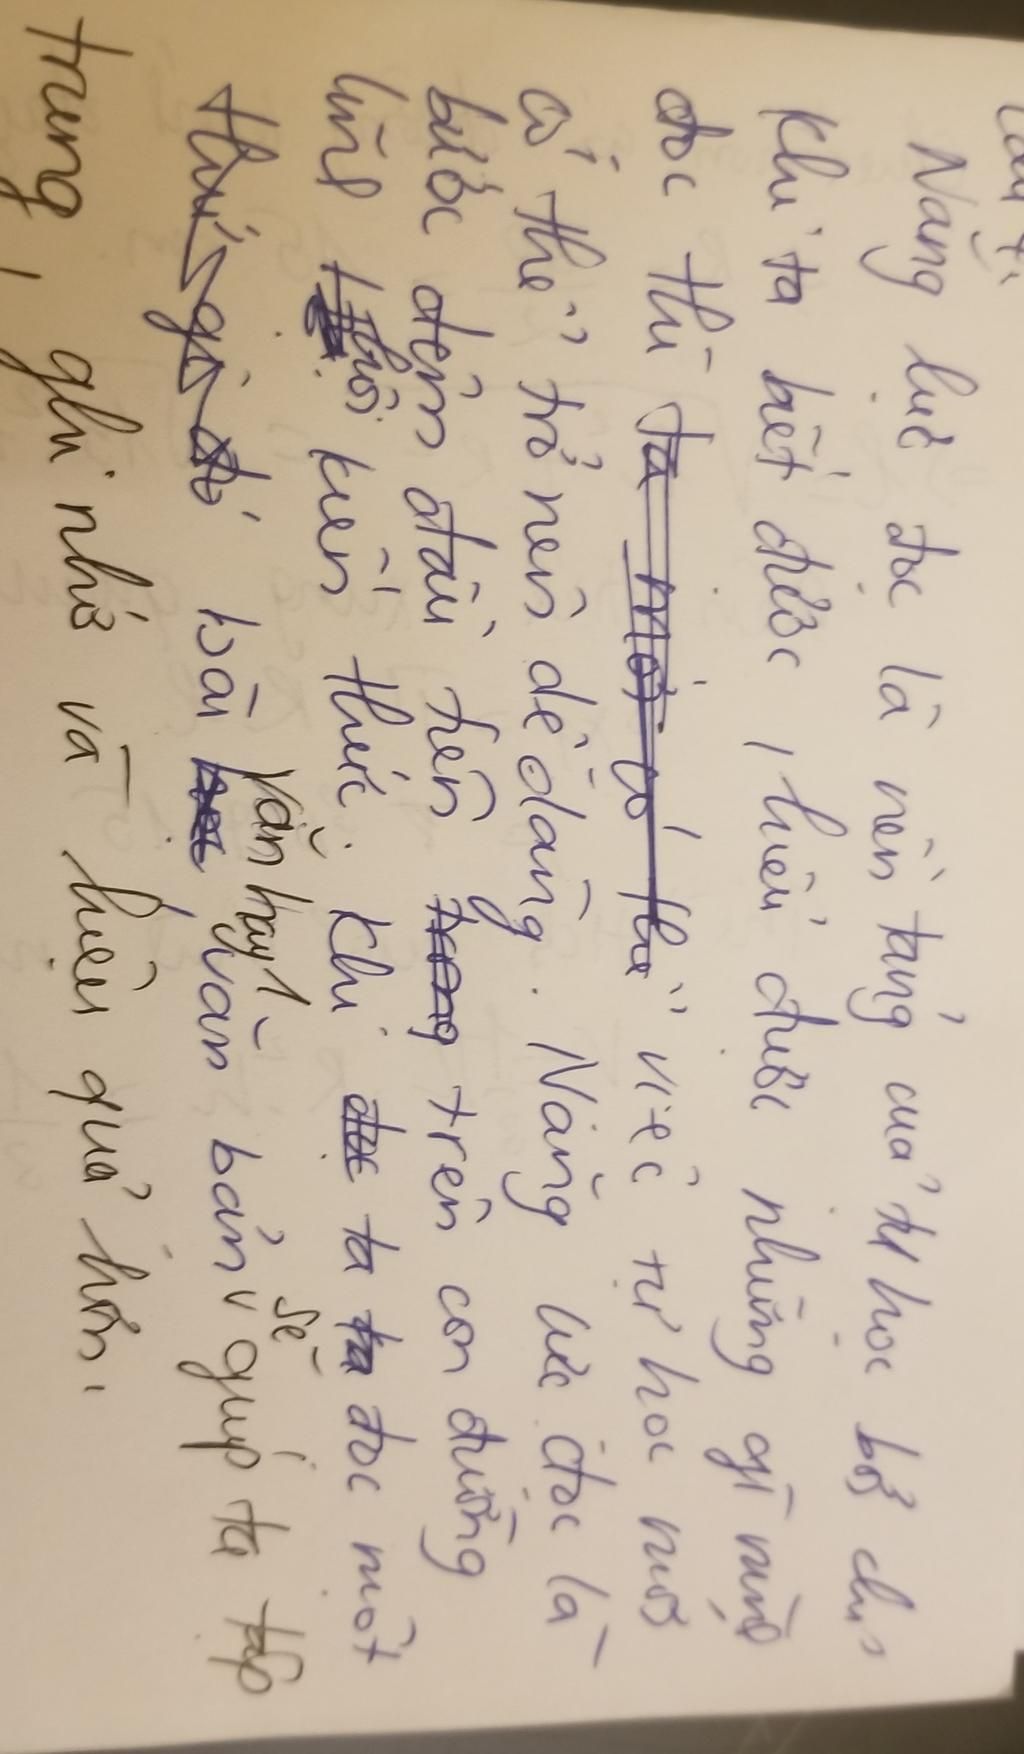 Năng lực đọc là nền tảng của tự học bởi chỉ
khi ta biết được, hiểu được những gì mình
đọc thì việc tự học mới
có thể trở nên dễ dàng. Năng lực đọc là
bước đệm đầu tiên trên con đường
lĩnh hội kiến thức. Khi ta đọc một
bài văn hay 1 văn bản sẽ giúp ta tập
trung, ghi nhớ và hiệu quả hơn.